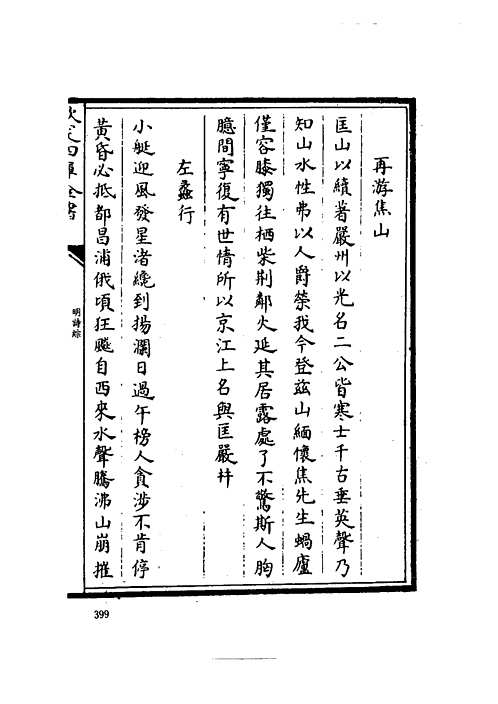 再游焦山
匡山以續著嚴州以光名二公皆寒士千古垂英聲乃
知山水性弗以人爵榮我今登茲山緬懷焦先生蝸廬
僅容膝獨往栖柴荆鄰火延其居露處了不驚斯人胸
臆間寧復有世情所以京江上名與匡嚴幷
左蠡行
小艇迎風發星渚纔到揚瀾日過午榜人貪涉不肯停
黃昏必抵都昌浦俄頃狂飈自西來水聲騰沸山崩摧
欽定四庫全書
明詩綜
399